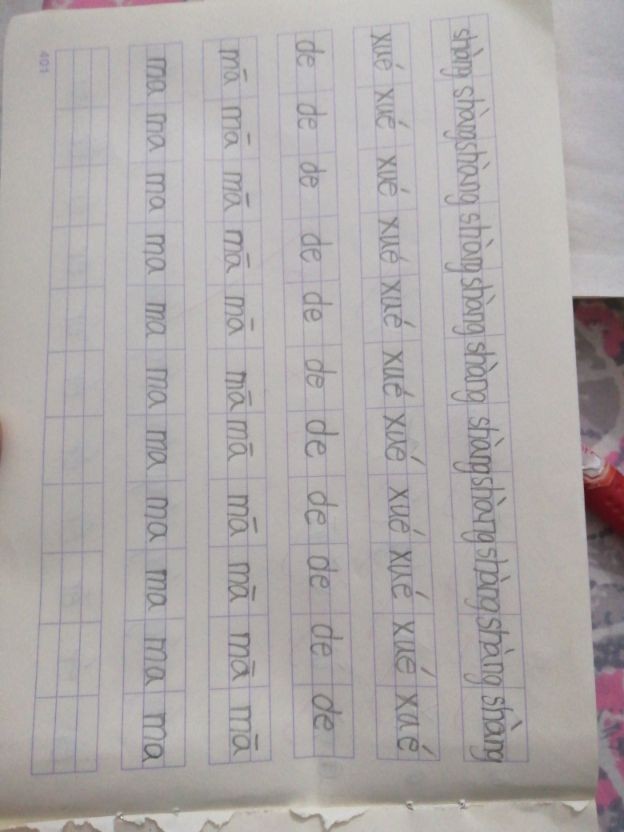 shàng shàng shàng shàng shàng shàng shàng shàng shàng shàng shàng
xué xué xué xué xué xué xué xué xué xué xué
de de de de de de de de de de de
mā mā mā mā mā mā mā mā mā mā mā
ma ma ma ma ma ma ma ma ma ma ma
401